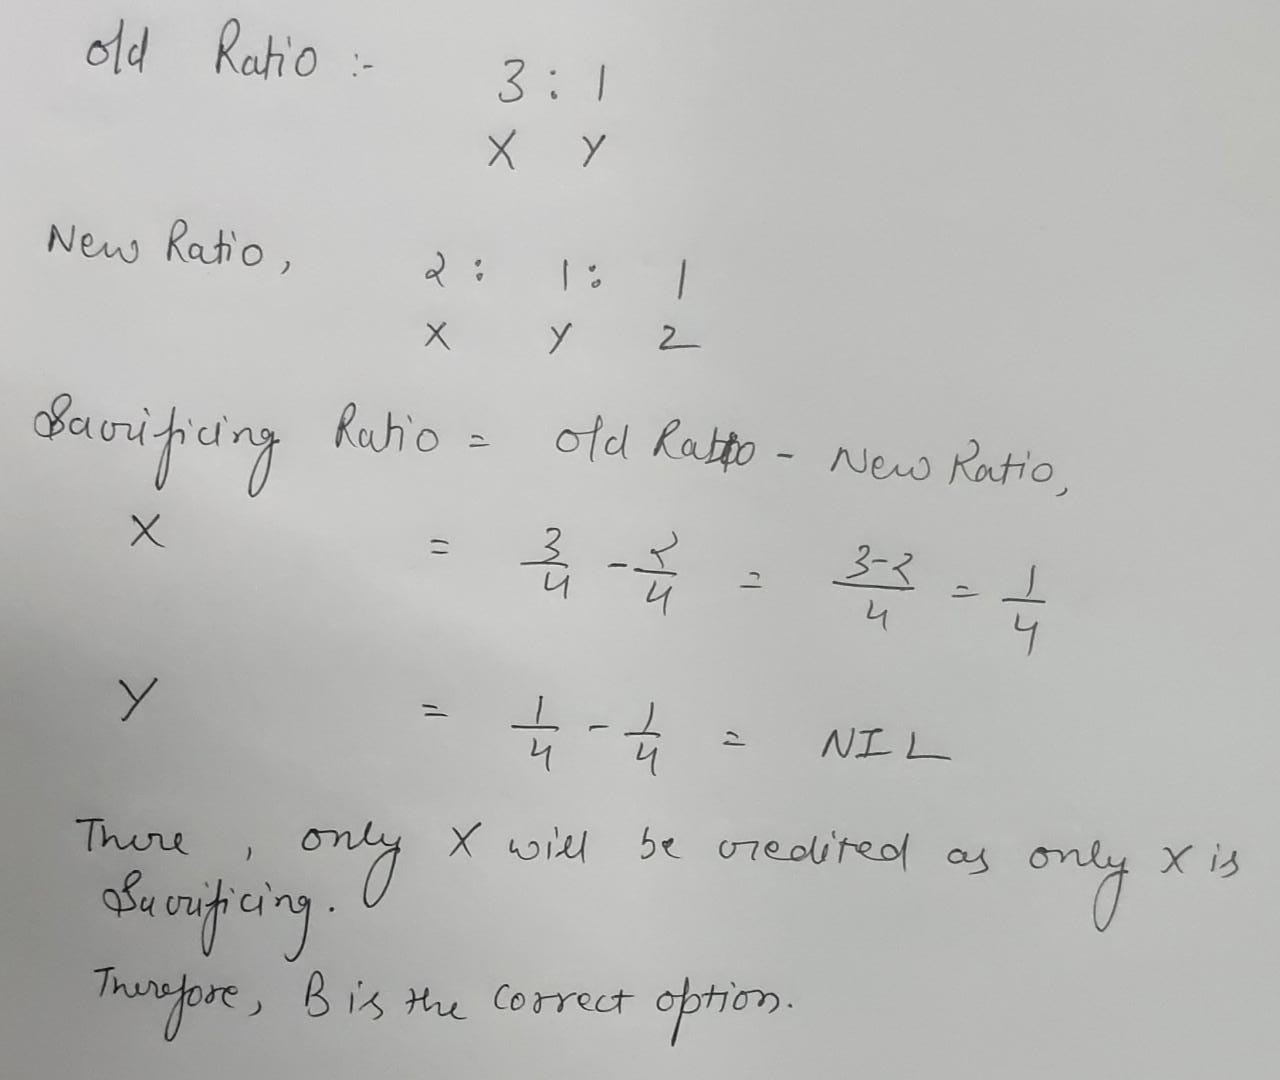 old Ratio :- 3 : 1
X Y
New Ratio, 2 : 1 : 1
X Y Z
Sacrificing Ratio = old Ratio - New Ratio,
X = 3/4 - 2/4 = 3-2/4 = 1/4
Y = 1/4 - 1/4 = NIL
There , only X will be credited as only X is
Sacrificing.
Therefore, B is the correct option.